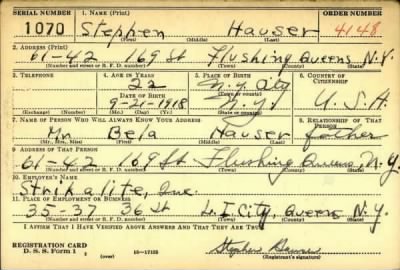 SERIAL NUMBER 1. NAME (Print) ORDER NUMBER
1070 Stephen Hauser 4148
(First) (Middle) (Last)
2. ADDRESS (Print)
61-42 169 St Flushing Queens N.Y.
(Number and street or R. F. D. number) (Town) (County) (State)
3. TELEPHONE 4. AGE IN YEARS 5. PLACE OF BIRTH 6. COUNTRY OF CITIZENSHIP
22 N.Y. City
(Town or county)
DATE OF BIRTH
9-21-1918 N.Y. U.S.A
(Exchange) (Number) (Mo.) (Day) (Yr.) (State or country)
7. NAME OF PERSON WHO WILL ALWAYS KNOW YOUR ADDRESS 8. RELATIONSHIP OF THAT PERSON
Mr. Bela Hauser father
(Mr., Mrs., Miss) (First) (Middle) (Last)
9. ADDRESS OF THAT PERSON
61-42 169 St Flushing Queens, N.Y.
(Number and street or R. F. D. number) (Town) (County) (State)
10. EMPLOYER'S NAME
Strikalite, Inc.
11. PLACE OF EMPLOYMENT OR BUSINESS
35-37 36 St L.I.City, Queens N.Y.
(Number and street or R. F. D. number) (Town) (County) (State)
I AFFIRM THAT I HAVE VERIFIED ABOVE ANSWERS AND THAT THEY ARE TRUE.
REGISTRATION CARD
D. S. S. Form 1 (over) 16-17105 Stephen Hauser
(Registrant's signature)